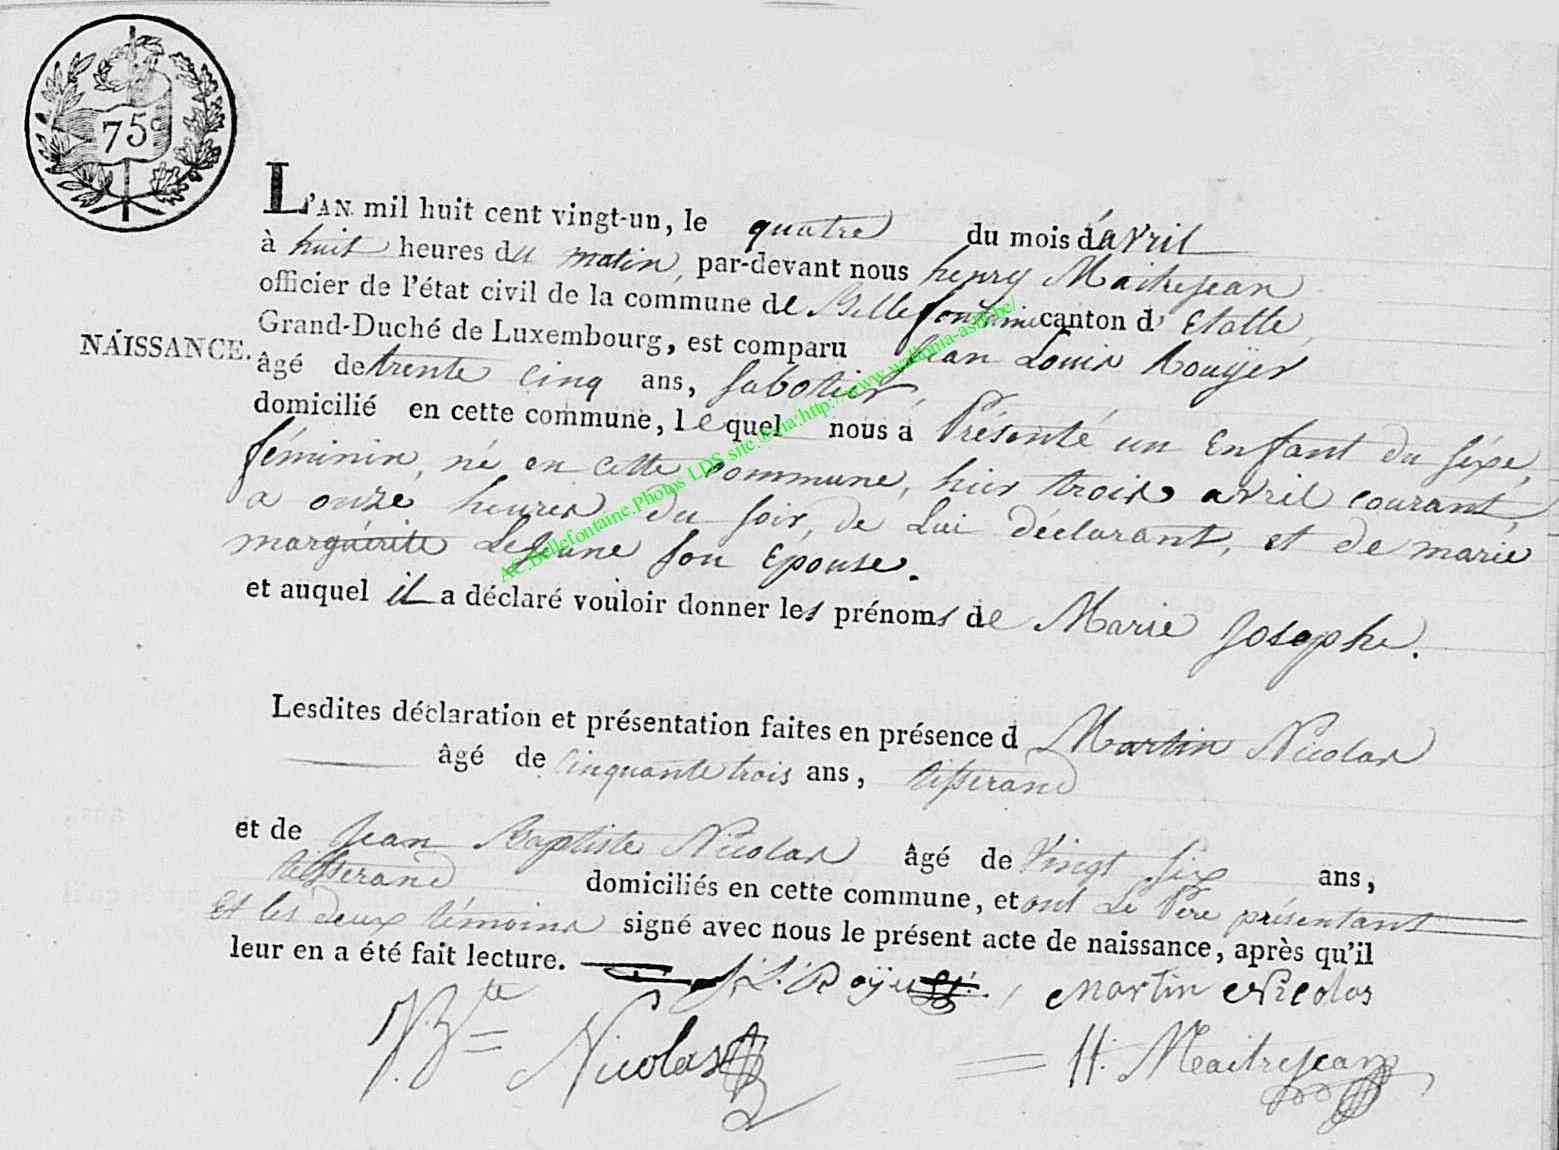 75c
L'AN mil huit cent vingt-un, le quatre du mois d'avril
à huit heures du matin, par-devant nous henry Maitrejean
officier de l'état civil de la commune de Bellefontaine canton d' Etalle,
Grand-Duché de Luxembourg, est comparu Jean Louis Rouyer
NAISSANCE.
âgé de trente cinq ans, sabotier,
domicilié en cette commune, lequel nous a Présenté un Enfant du sexe,
féminin, né en cette commune, hier trois avril courant,
a onze heures du soir, de Lui déclarant, et de marie
marguérite LeJeune son Epouse.
et auquel il a déclaré vouloir donner les prénoms de Marie Josephe.
Lesdites déclaration et présentation faites en présence d Martin Nicolas
âgé de cinquante trois ans, tisserand
et de Jean Baptiste Nicolas âgé de Vingt six ans,
tisserand domiciliés en cette commune, et ont Le Père présentant
Et les deux témoins signé avec nous le présent acte de naissance, après qu'il
leur en a été fait lecture.
J. L. Royer, Martin Nicolas
J. Bte Nicolas H. Maitrejean
AC.Bellefontaine.Photos LDS site.Asria:http://www.wallonia-asbl.be/